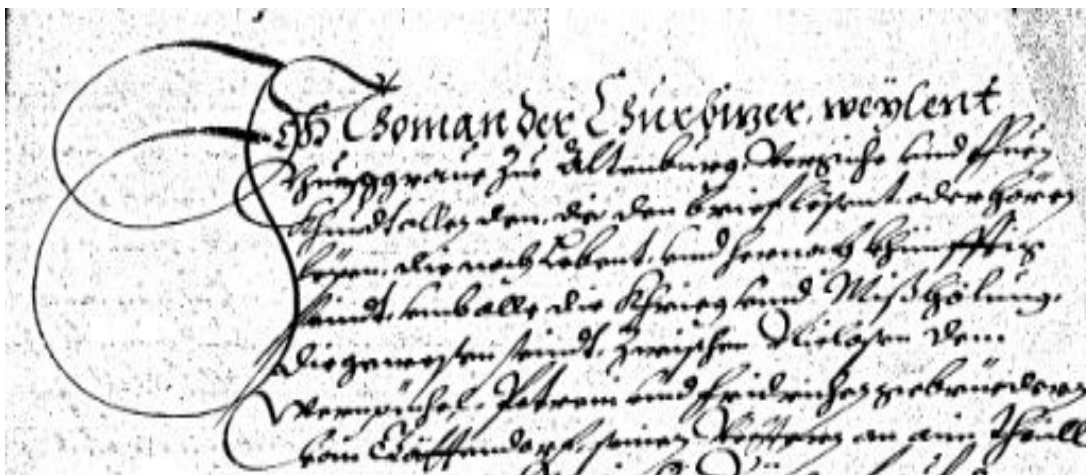 Ich Thoman der Chürbizer, weylent
Burggraue zue Altenburg Vergiche und thuen
Khundt allen den, die den brief lesent, oder hören
lesen, die noch Lebent, und hernach Khünfftig
seindt, umb alle die Khrieg und Mißhölung,
die gewesen seindt, zwischen Niclasen dem
Vernpüchel, Petrem und Fridrichen gebrüedern
von seinen Vöttern an aim thaill